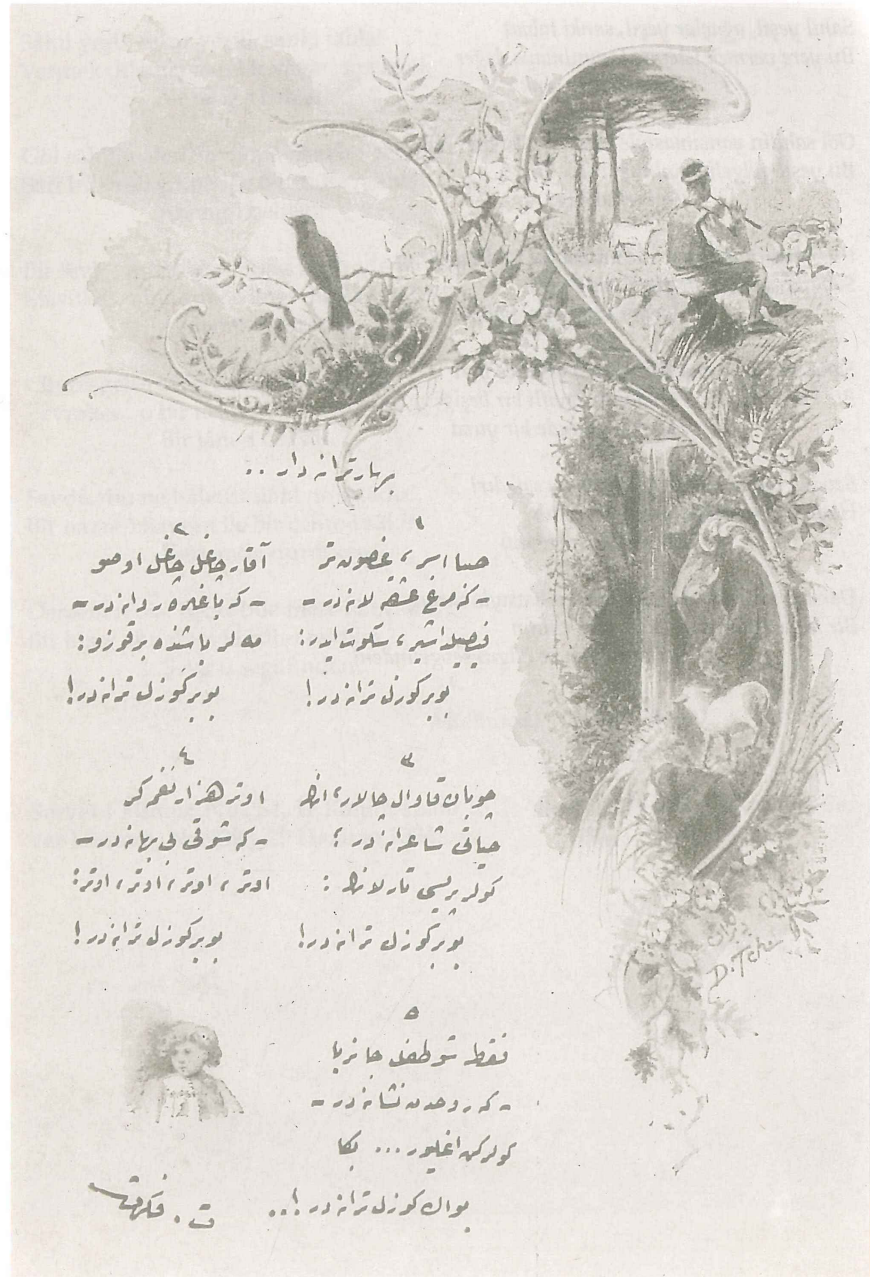 بهار ترانه دار ..
١
صبا اسر، غصون تر
- كه مرغ عشقه لانه در -
فیصیلداشیر، سكوت ایدر:
بو بر كوزل ترانه در!
٢
آقار چاغل چاغل او صو
- كه باغلره روانه در -
مه لر باشنده بر قوزو:
بو بر كوزل ترانه در!
٣
چوبان قاوال چالار، انك
حیاتی شاعرانه در؛
كولر پریسی تارلانك:
بو بر كوزل ترانه در!
٤
اوتر هزار نغمه كر
- كه شوقی بی بهانه در -
اوتر، اوتر، اوتر، اوتر:
بو بر كوزل ترانه در!
٥
فقط شو طفل جانربا
- كه روحدن نشانه در -
كولركن اغلیور ... بكا
بو اك كوزل ترانه در!..
ت . فكرت
D. Tch